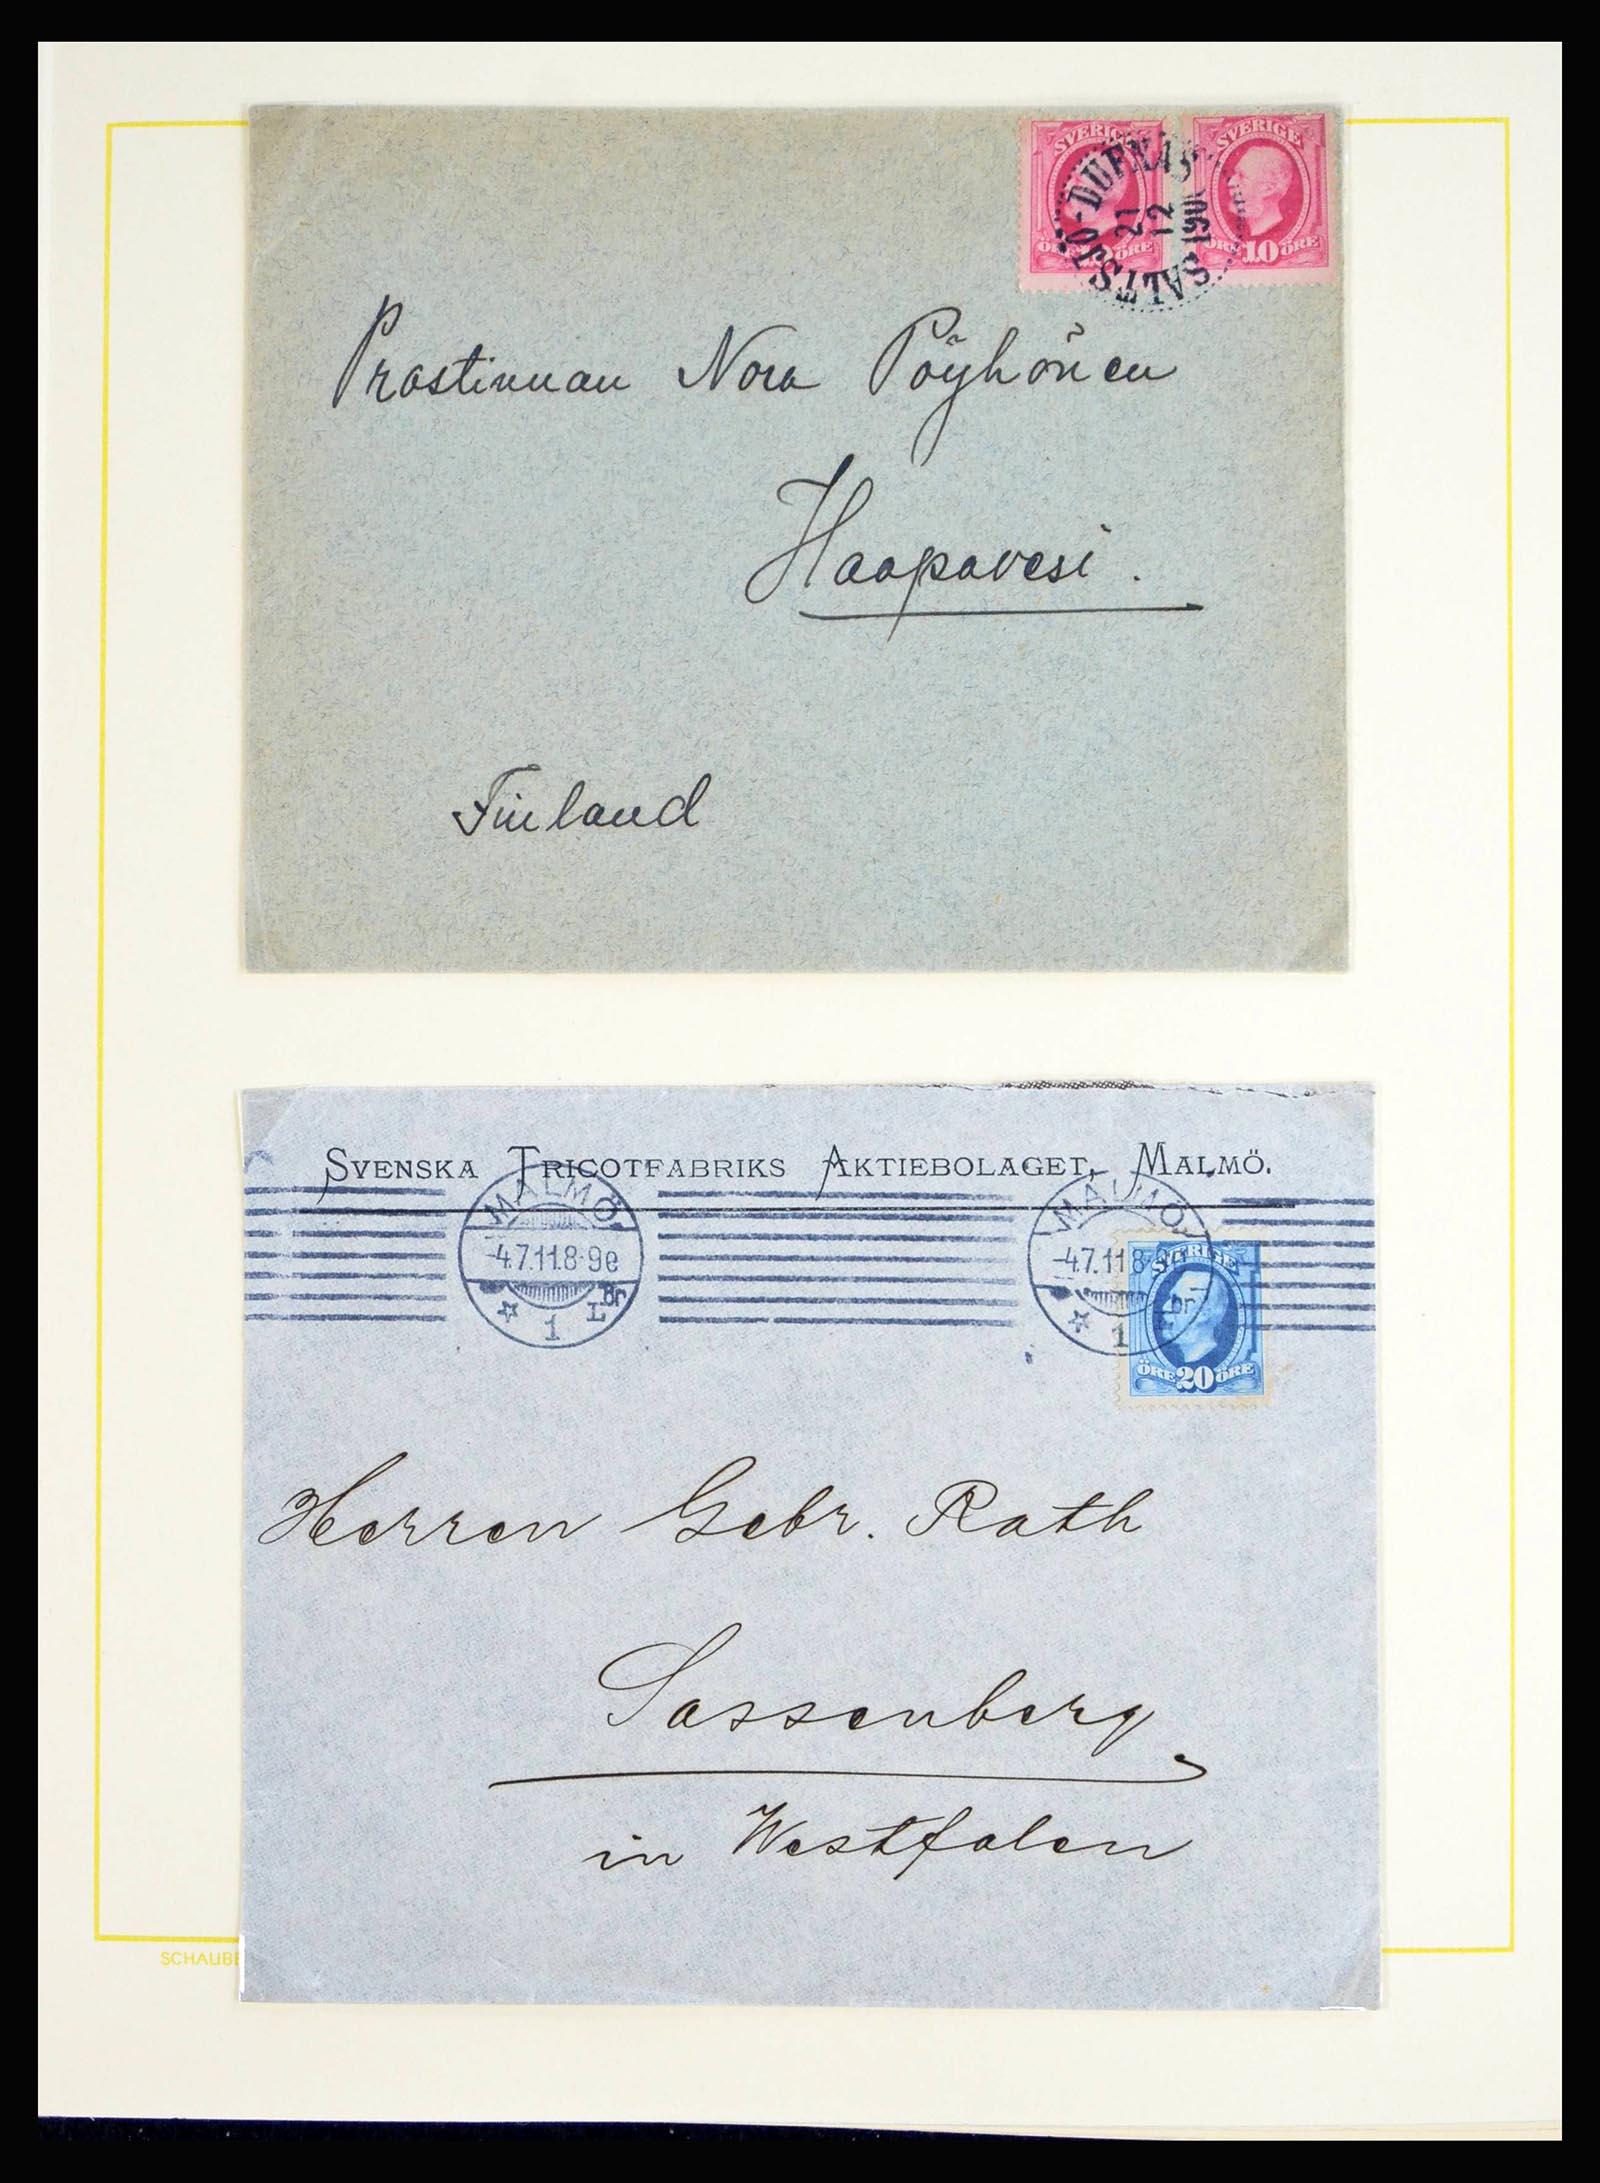 SVERIGE
SVERIGE
ÖRE ÖRE
ÖRE 10 ÖRE
SALTSJÖ-DUFNÄS
21
12
Prostinnan Nora Pöyhönen
Haapavesi.
Finland
SVENSKA TRICOTFABRIKS AKTIEBOLAGET, MALMÖ.
MALMÖ
-4.7.11.8-9e
1
L Br
MALMÖ
-4.7.11 8-9
1
br
SVERIGE
ÖRE 20 ÖRE
Herren Gebr. Rath
Sassenberg
in Westfalen
SCHAUBE